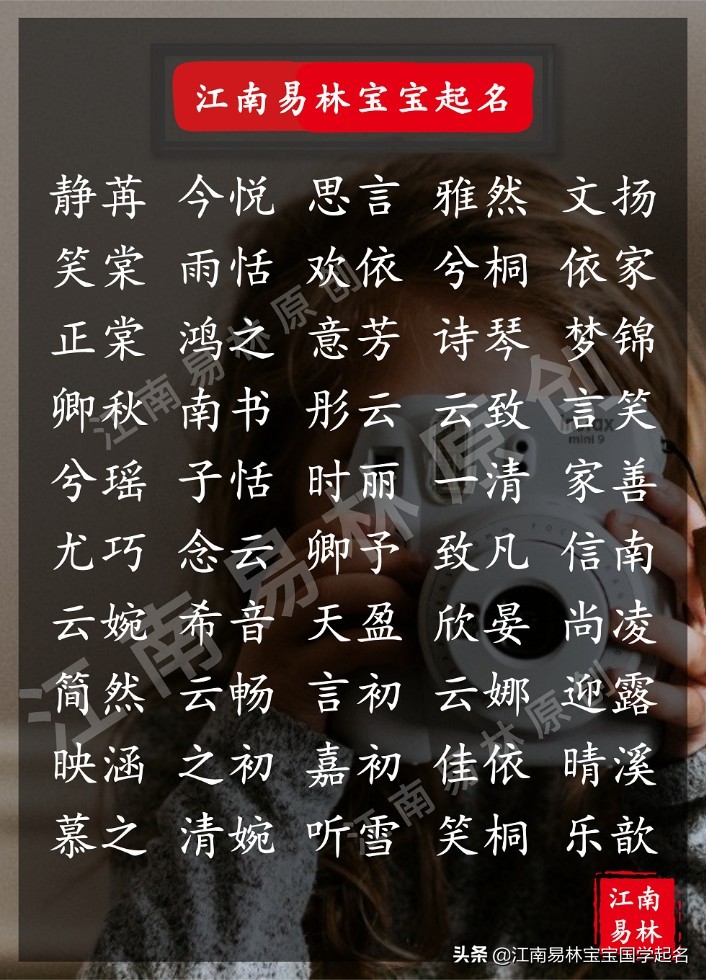 江南易林宝宝起名
静苒 今悦 思言 雅然 文扬
笑棠 雨恬 欢依 兮桐 依家
正棠 鸿之 意芳 诗琴 梦锦
卿秋 南书 彤云 云致 言笑
兮瑶 子恬 时丽 一清 家善
尤巧 念云 卿予 致凡 信南
云婉 希音 天盈 欣晏 尚凌
简然 云畅 言初 云娜 迎露
映涵 之初 嘉初 佳依 晴溪
慕之 清婉 听雪 笑桐 乐歆
江南易林原创
江南易林原创
江南易林原创
instax
mini 9
江南
易林
头条 @江南易林宝宝国学起名